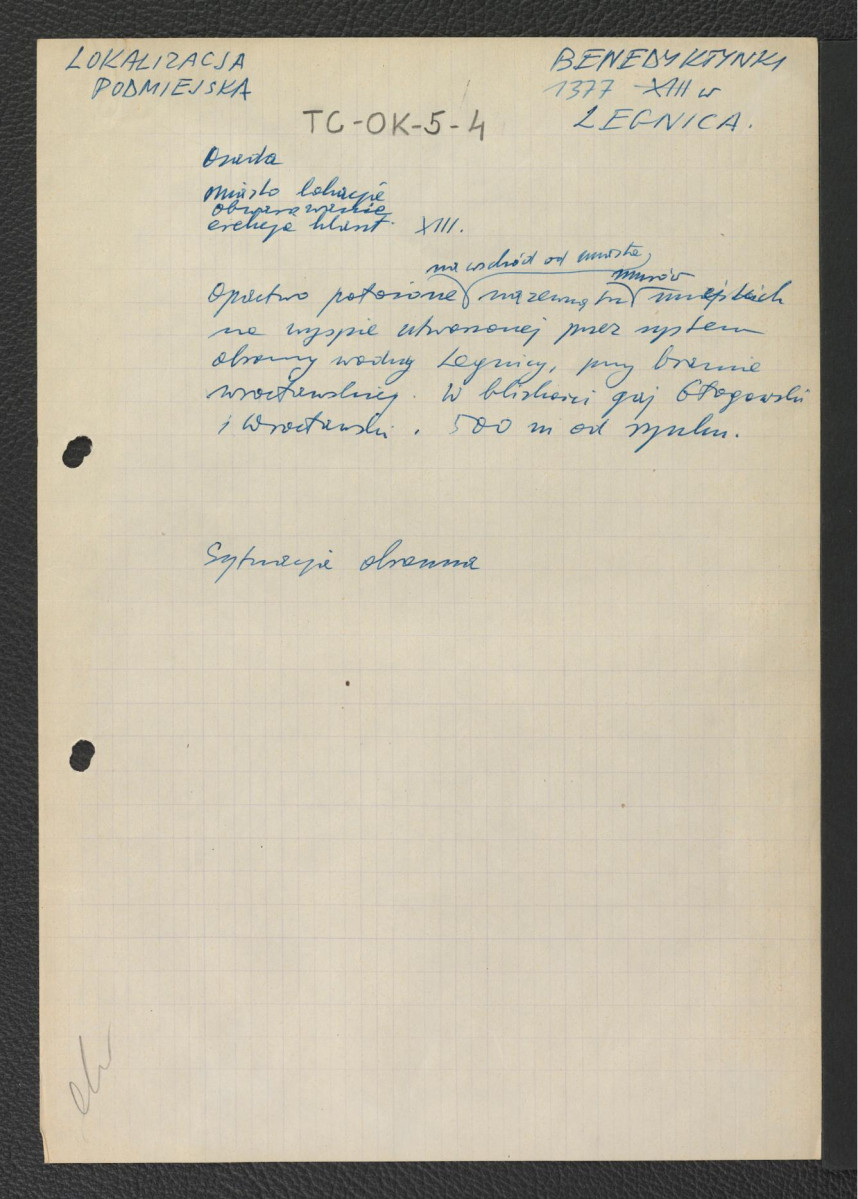 LOKALIZACJA
PODMIEJSKA
BENEDYKTYNKI
1377 XIII w
LEGNICA.
TC-OK-5-4
Osada
miasto lokacyjne
obwarowanie
erekcja klaszt. XIII.
na wschód od miasta,
murów
Opactwo położone na zewnątrz miejskich
na wyspie utworzonej przez system
obronny wodny Legnicy, przy bramie
wrocławskiej. W bliskości Głogowski
i Wrocławski. 500 m od rynku.
Sytuacja obronna